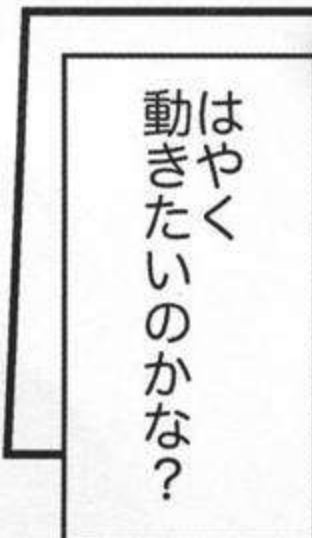 はやく
動きたいのかな？